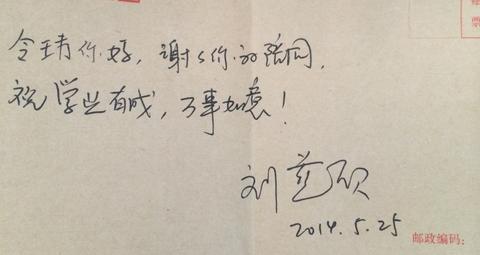 令玮你好，谢谢你的陪同，
祝学业有成，万事如意！
刘慈欣
2014.5.25
邮政编码：
票